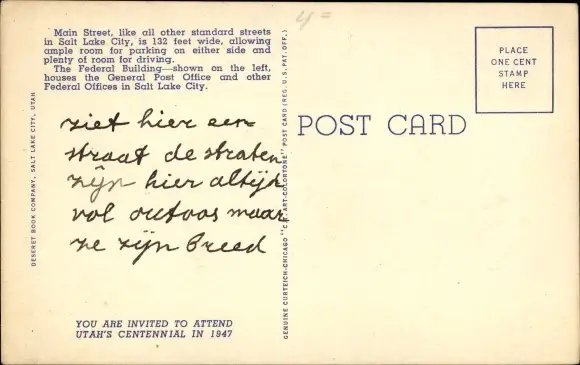 Main Street, like all other standard streets
in Salt Lake City, is 132 feet wide, allowing
ample room for parking on either side and
plenty of room for driving.
The Federal Building—shown on the left,
houses the General Post Office and other
Federal Offices in Salt Lake City.
ziet hier een
straat de straten
zijn hier altijt
vol outoos maar
ze zijn breed
YOU ARE INVITED TO ATTEND
UTAH'S CENTENNIAL IN 1947
DESERET BOOK COMPANY, SALT LAKE CITY, UTAH
GENUINE CURTEICH-CHICAGO "C.T. ART-COLORTONE" POST CARD (REG. U.S. PAT. OFF.)
POST CARD
PLACE
ONE CENT
STAMP
HERE